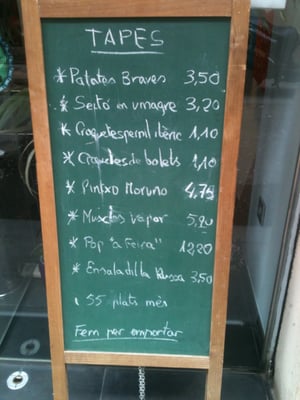 TAPES
* Patates Braves 3,50
* Seitó en vinagre 3,20
* Croquetes pernil ibèric 1,10
* Croquetes de bolets 1,10
* Pintxo Moruno 4,75
* Musclos vapor 5,20
* Pop "a Feira" 12,20
* Ensaladilla Russa 3,50
i 55 plats més
Fem per emportar